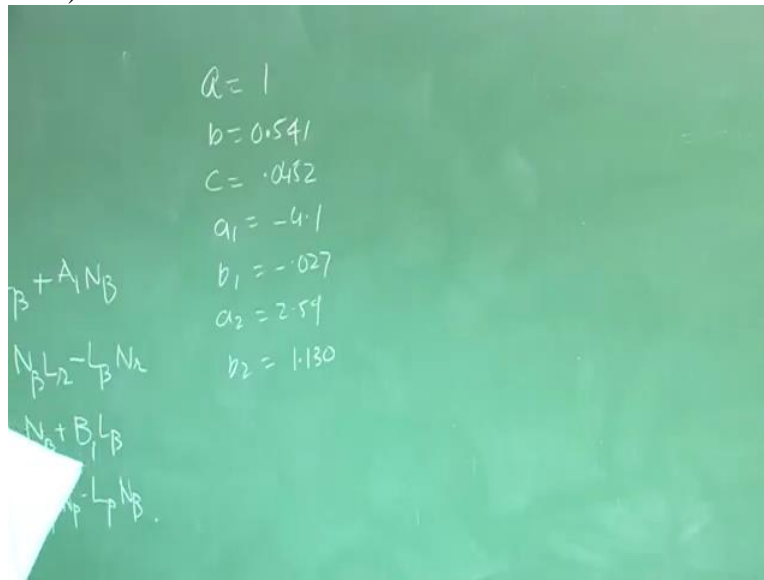 a = 1
b = 0.541
c = .0452
a₁ = -4.1
b₁ = -.027
a₂ = 2.59
b₂ = 1.130
β + A₁Nβ
NβLr - LβNr
Nβ + B₁Lβ
Np - LpNβ.